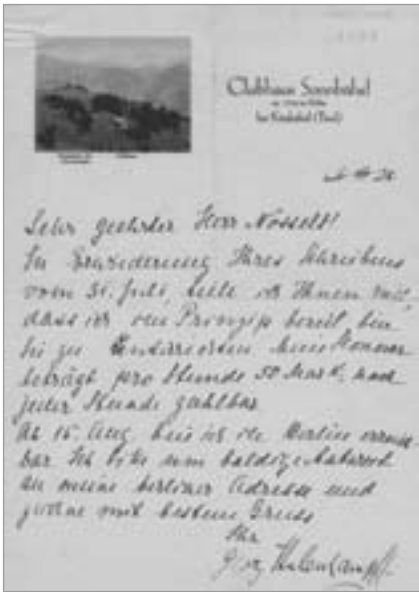 Clubhaus Sonnbühel
bei Kitzbühel (Tirol)
Sehr geehrter Herr Nosselt!
In Erwiderung Ihres Schreibens
vom 31. Juli, teile ich Ihnen mit,
dass ich im Prinzip bereit bin
Sie zu unterrichten. Mein Honorar
beträgt pro Stunde 50 Mark, nach
jeder Stunde zahlbar
Ab 15. Aug. bin ich in Berlin erreich-
bar Ich bitte um baldige Antwort
an meine berliner Adresse und
zeichne mit bestem Gruss
Ihr
Georg Kulenkampff